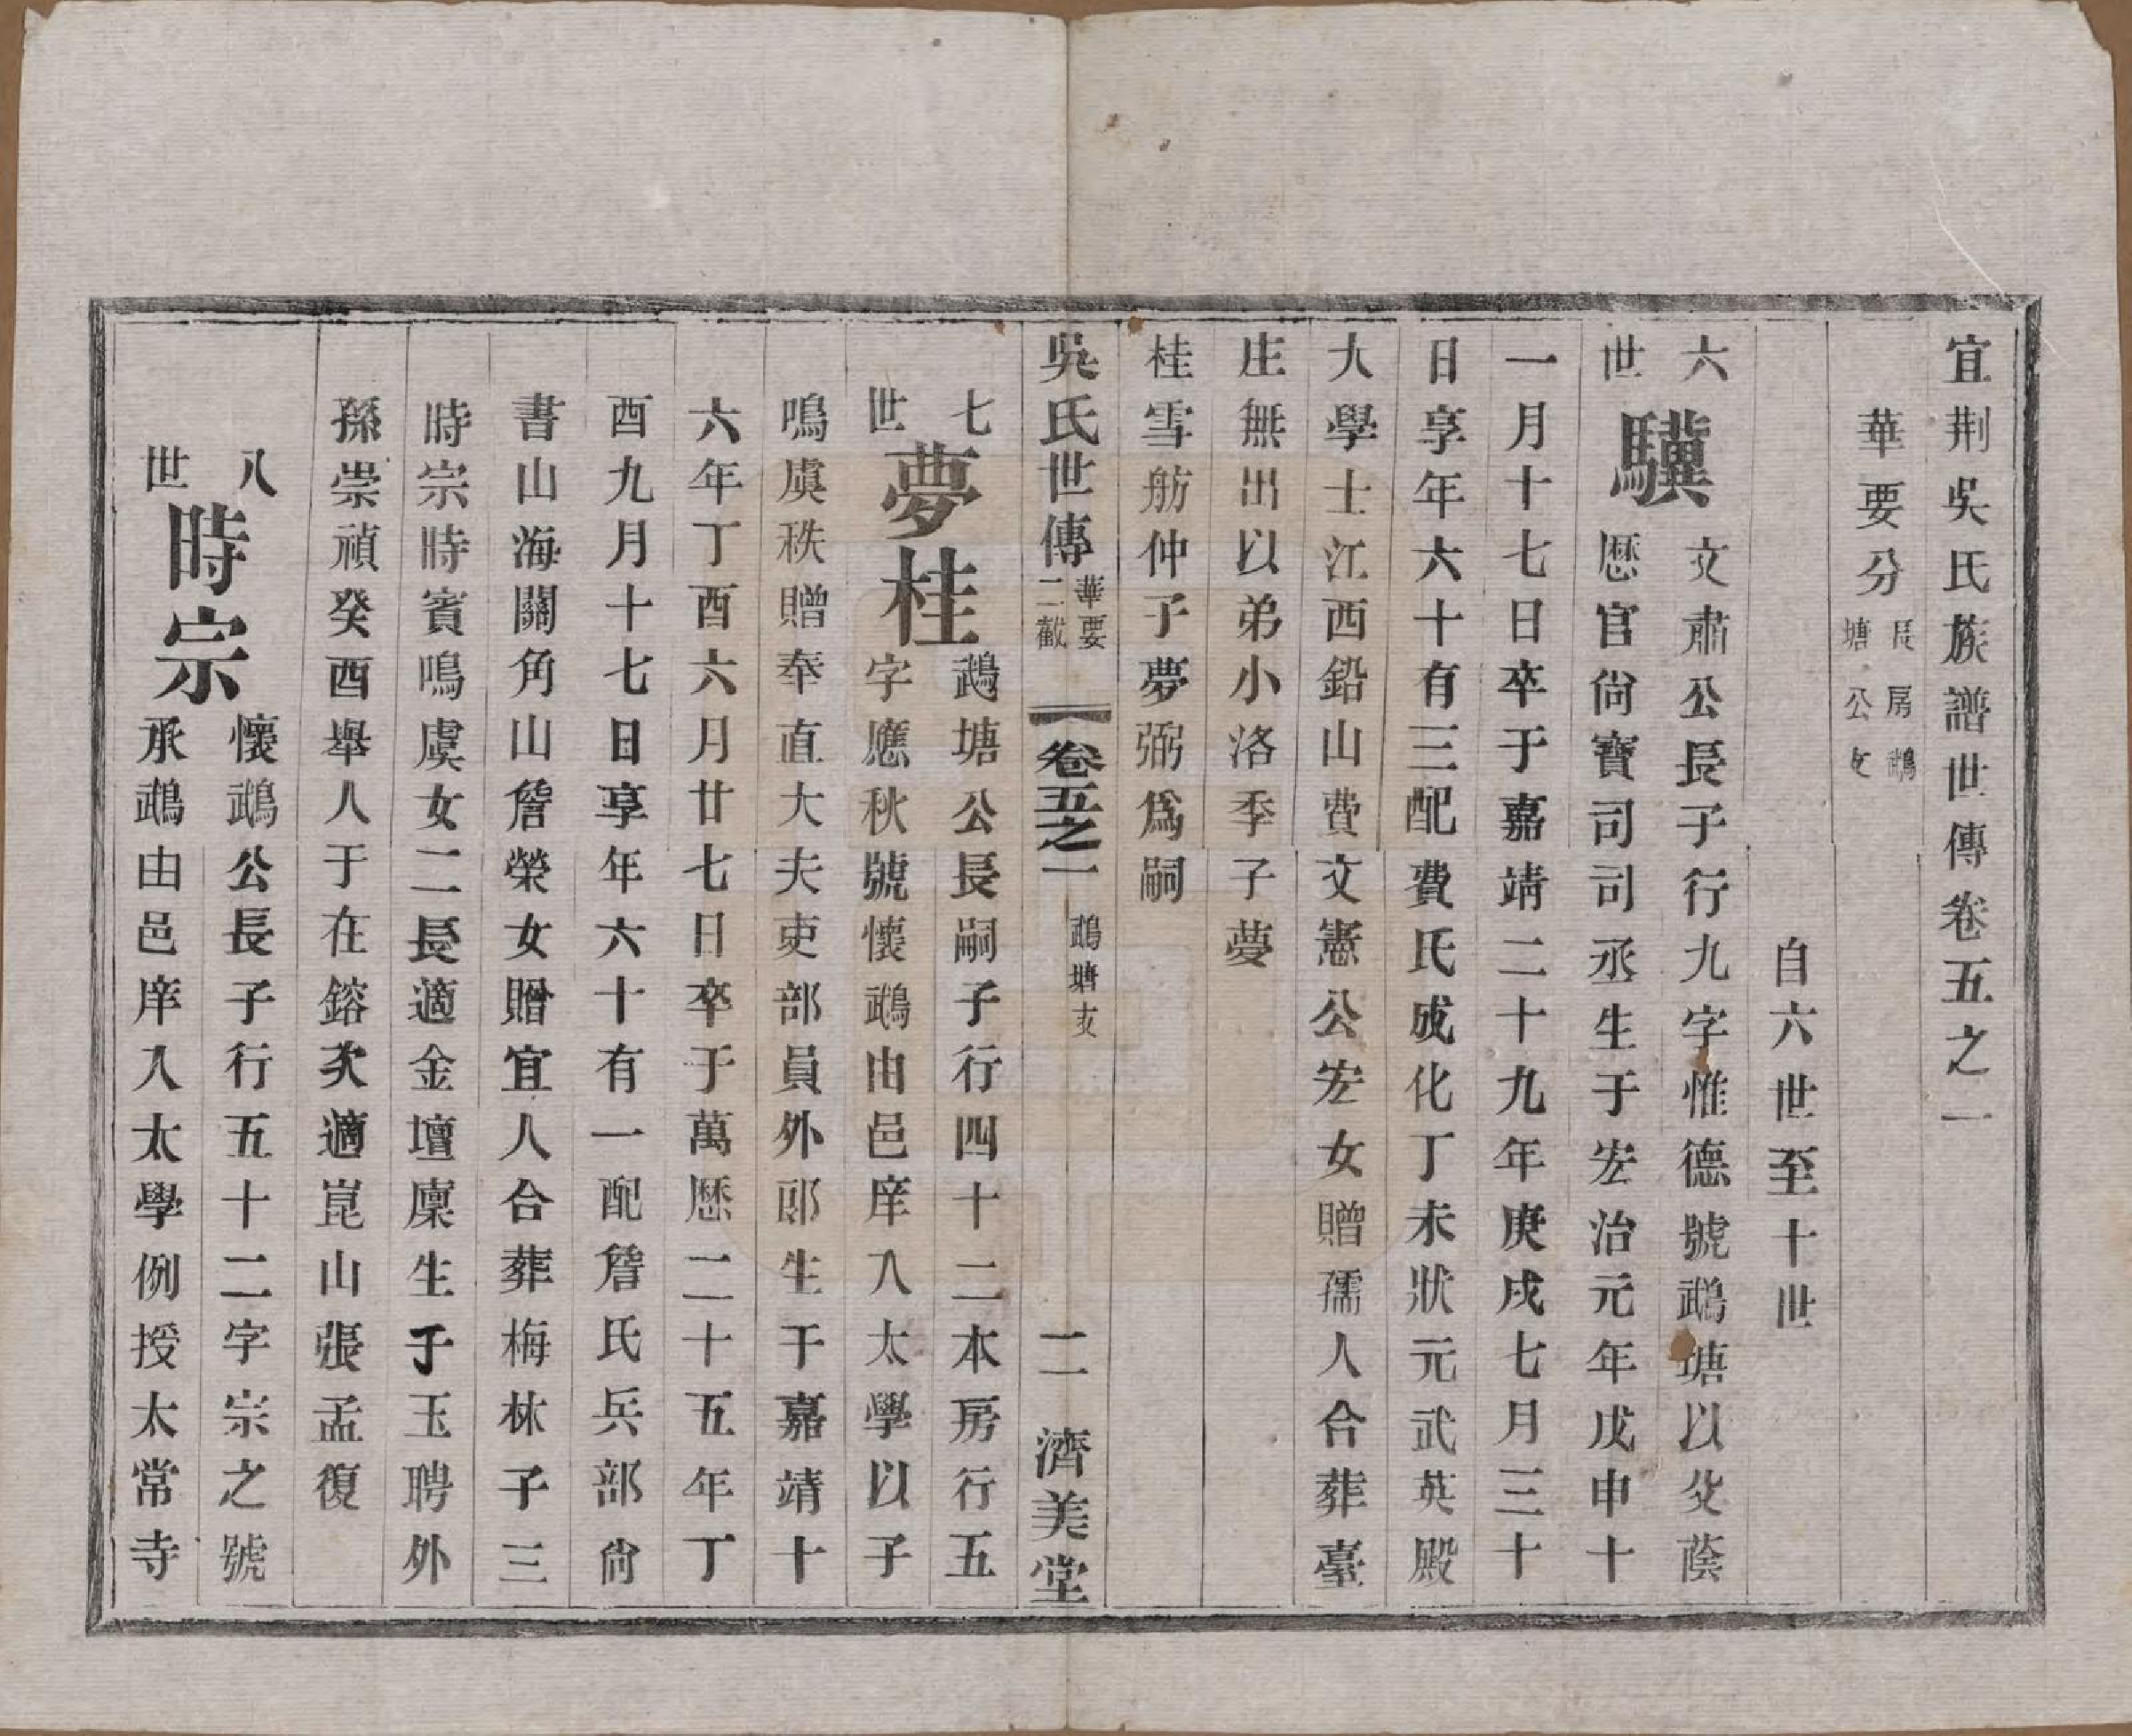 宜荆吳氏族譜世傳卷五之一
華要分長房鵡塘公支
自六世至十世
六世
驥
文肅公長子行九字惟德號鵡塘以父蔭
歴官尙寶司司丞生于宏治元年戊申十
一月十七日卒于嘉靖二十九年庚戌七月三十
日享年六十有三配費氏成化丁未狀元武英殿
大學士江西鉛山費文憲公宏女贈孺人合葬臺
庄無出以弟小洛季子夢
桂雪舫仲子夢弼爲嗣
吳氏世傳 華要二截 卷五之一 鵡塘支 一 濟美堂
七世
夢桂
鵡塘公長嗣子行四十二本房行五
字應秋號懷鵡由邑庠入太學以子
鳴虞秩贈奉直大夫吏部員外郎生于嘉靖十
六年丁酉六月廿七日卒于萬歴二十五年丁
酉九月十七日享年六十有一配詹氏兵部尙
書山海關角山詹榮女贈宜人合葬梅林子三
時宗時賓鳴虞女二長適金壇廩生于玉聘外
孫崇禎癸酉舉人于在鎔次適崑山張孟復
八世
時宗
懷鵡公長子行五十二字宗之號
承鵡由邑庠入太學例授太常寺